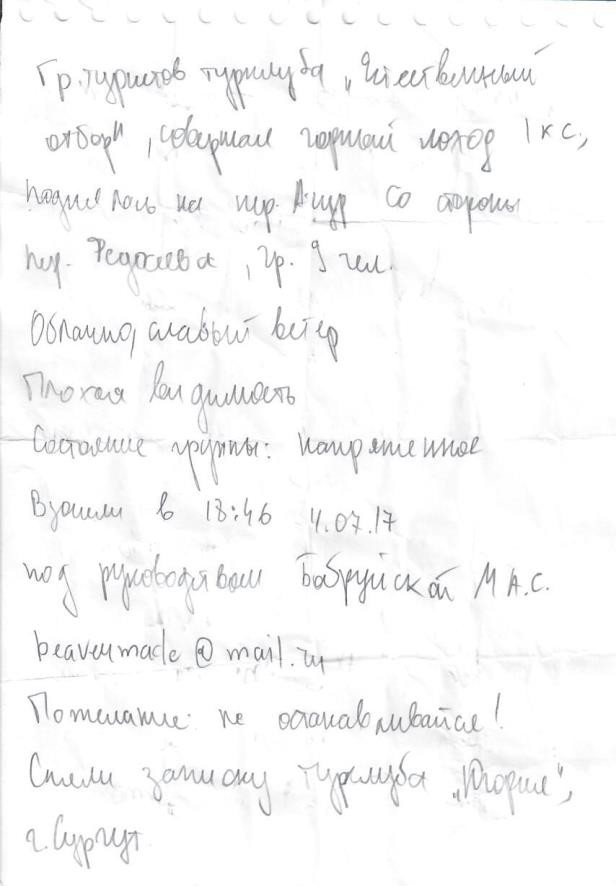 Гр. туристов турклуба „Естественный
отбор", совершая горный поход 1 к с.,
поднялась на пер. Ацур со стороны
пер. Федосеева, гр. 9 чел.
Облачно, слабый ветер
Плохая видимость
Состояние группы: напряженное
Взошли в 18:46 4.07.17
под руководством Бобруйской М А.С.
@mail.ru
Пожелание: не останавливайся!
Сняли записку турклуба „Югория",
г. Сургут